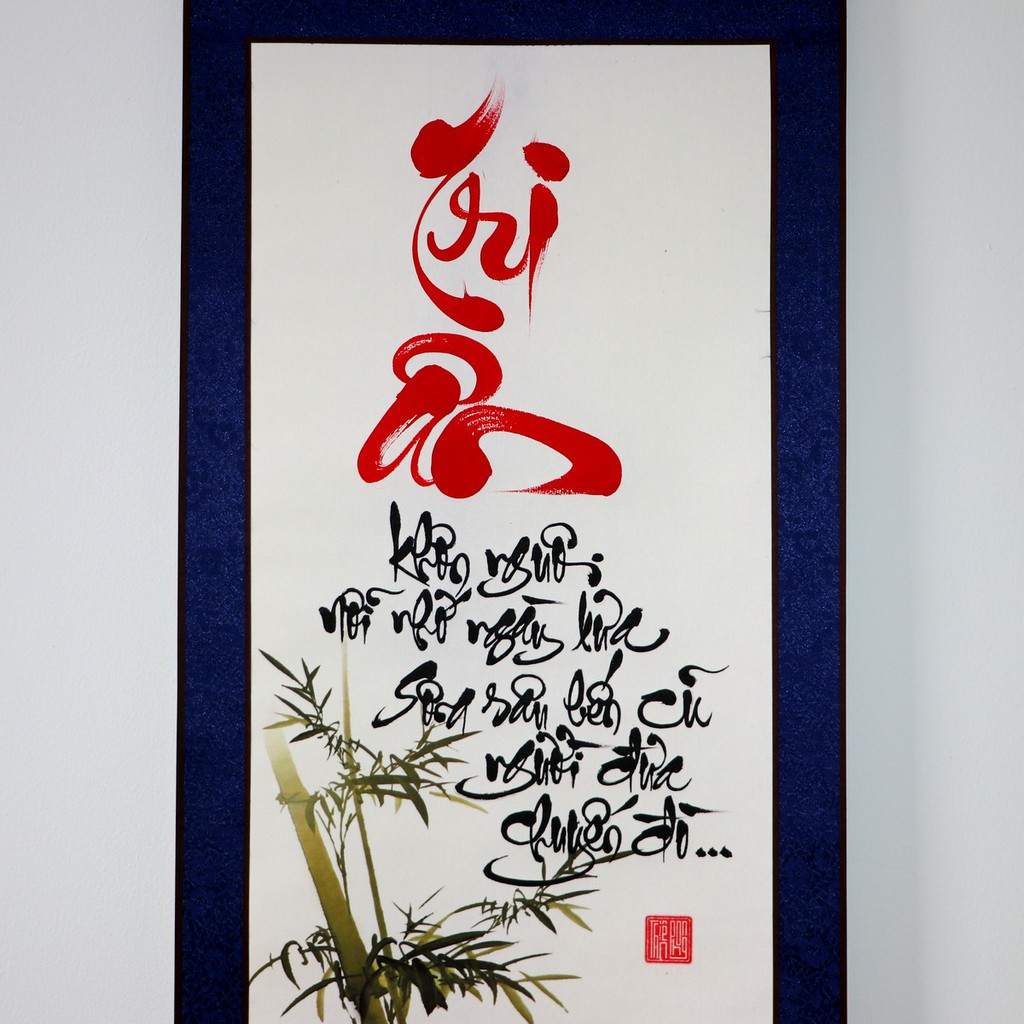 Tri
Ân
khôn nguôi
nỗi nhớ ngày xưa
Sông sâu bến cũ
người đưa
chuyến đò...